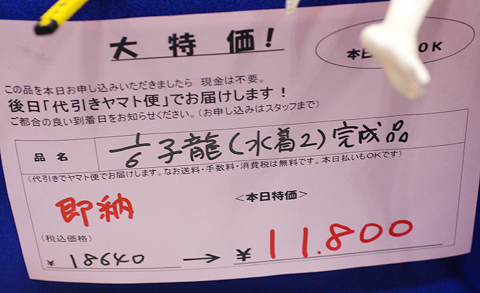 大特価!
本日 OK
この品を本日お申し込みいただきましたら 現金は不要。
後日「代引きヤマト便」でお届けします!
ご都合の良い到着日をお知らせください。(お申し込みはスタッフまで)
品名 1/6 子龍(水着2)完成品
(代引きでヤマト便でお届けします。なお送料・手数料・消費税は無料です。本日払いもOKです)
即納 <本日特価>
(税込価格)
¥ 18640 → ¥ 11.800